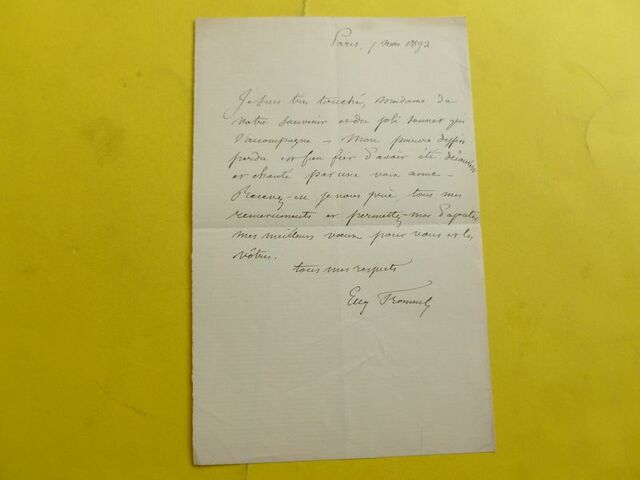 Paris, 7 mai 1892
Je suis très touché, Madame de
votre souvenir et du joli sonnet qui
l'accompagne - Mon pauvre dessin
perdu est bien fier d'avoir été découvert
et chanté par une voix amie -
Recevez-en je vous prie tous mes
remerciements et permettez-moi d'ajouter
mes meilleurs vœux pour vous et les
vôtres.
tous mes respects
Eug